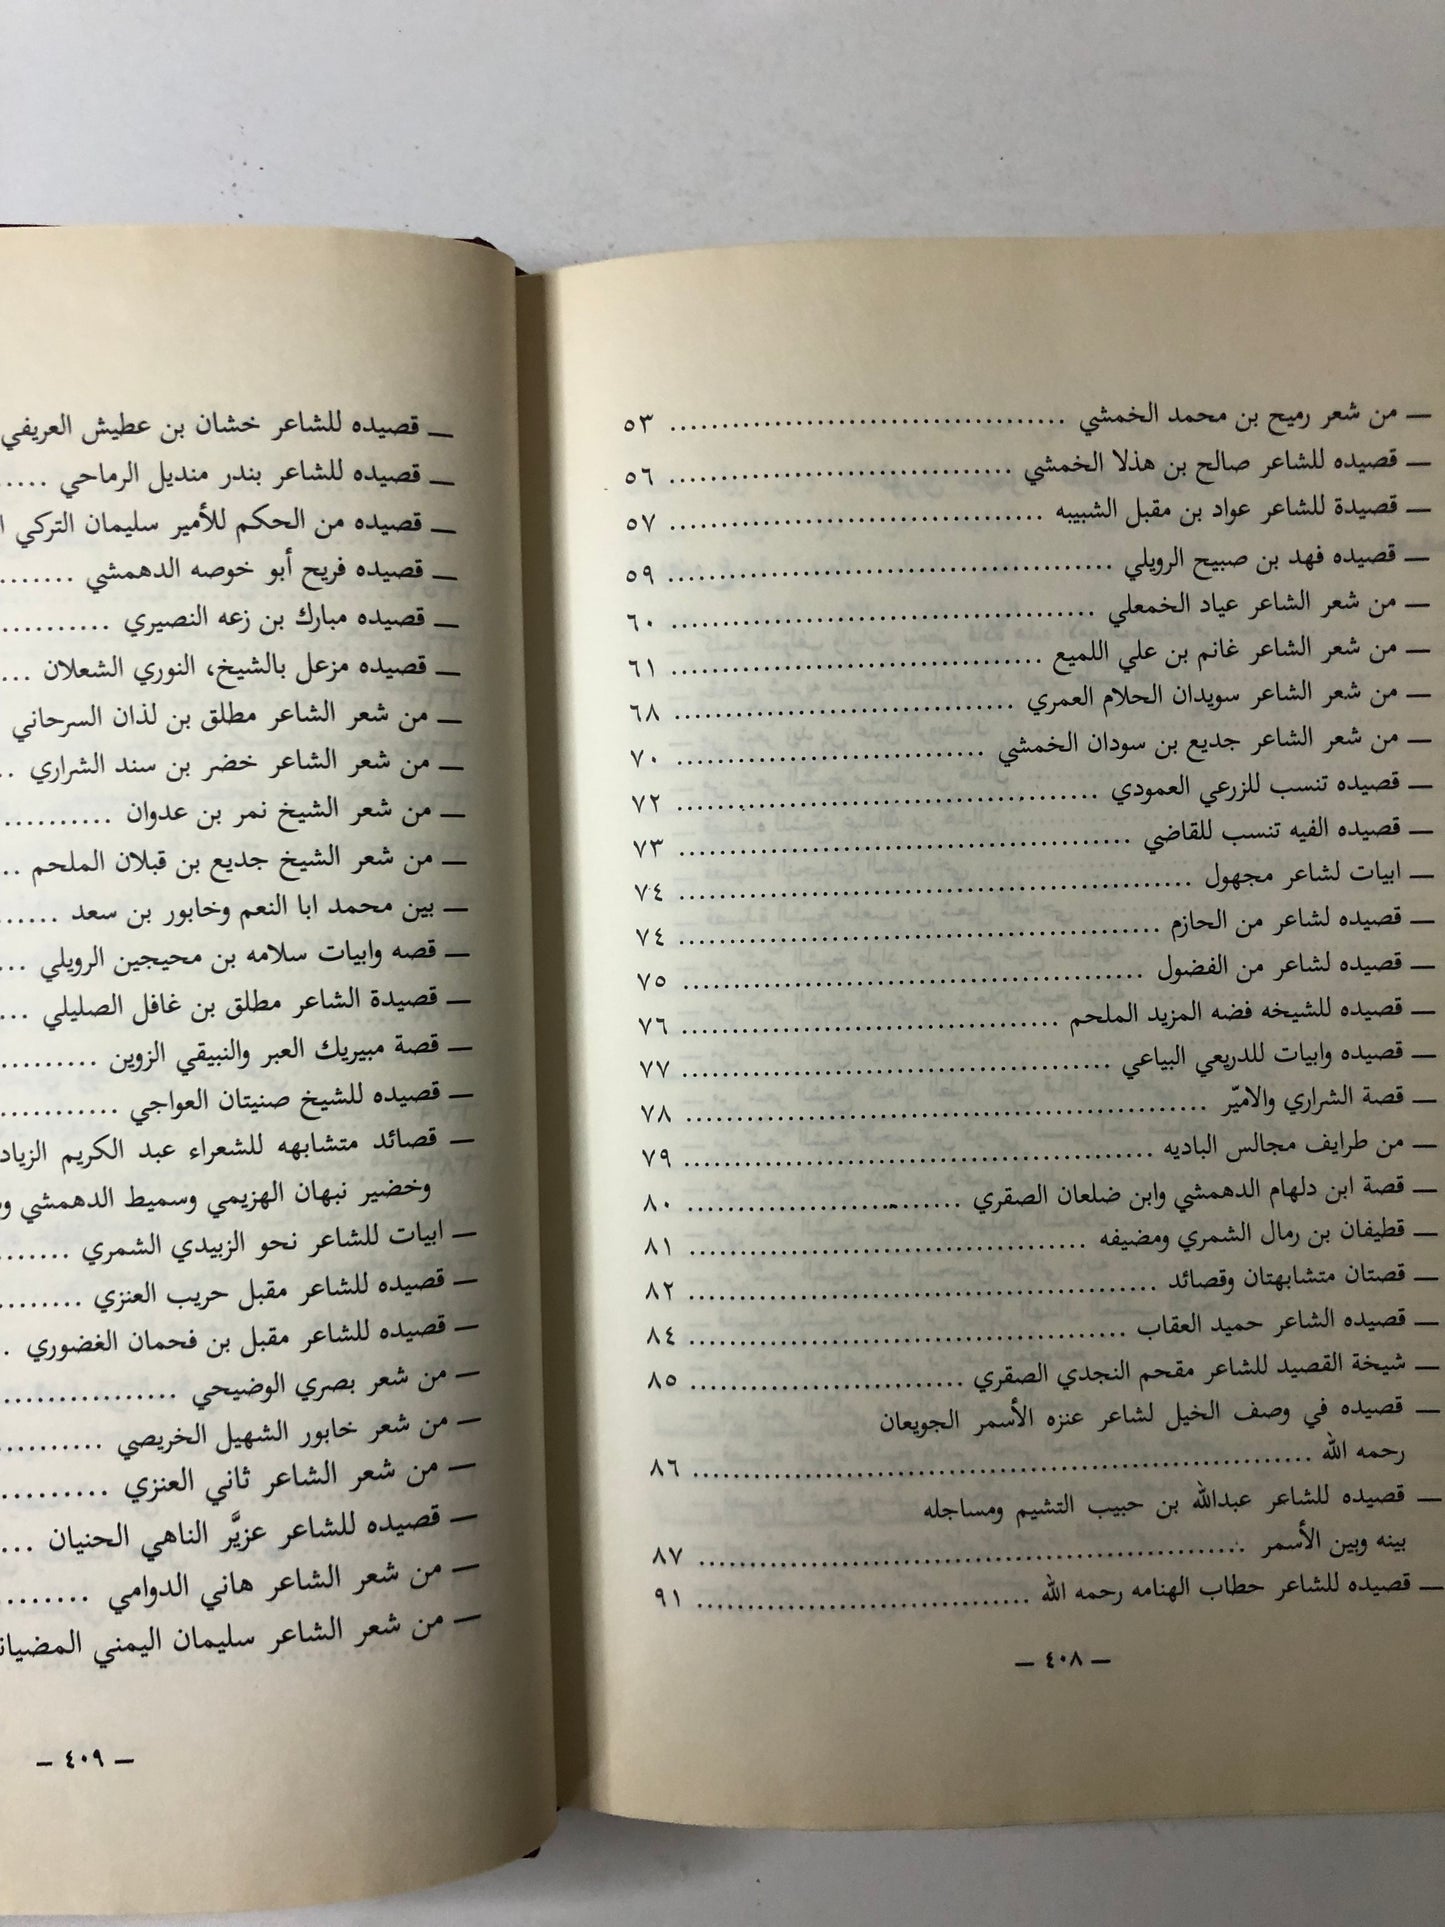 — من شعر رميح بن محمد الخمشي ..................................... ٥٣
— قصيده للشاعر صالح بن هذلا الخمشي ................................ ٥٦
— قصيدة للشاعر عواد بن مقبل الشبيبه ................................... ٥٧
— قصيده فهد بن صبيح الرويلي .......................................... ٥٩
— من شعر الشاعر عياد الخمعلي ........................................ ٦٠
— من شعر الشاعر غانم بن علي اللميع ................................... ٦١
— من شعر الشاعر سويدان الحلام العمري ................................ ٦٨
— من شعر الشاعر جديع بن سودان الخمشي ............................. ٧٠
— قصيده تنسب للزرعي العمودي ........................................ ٧٢
— قصيده الفيه تنسب للقاضي ........................................... ٧٣
— ابيات لشاعر مجهول ................................................ ٧٤
— قصيده لشاعر من الحازم ............................................. ٧٤
— قصيده لشاعر من الفضول ........................................... ٧٥
— قصيده للشيخه فضه المزيد الملحم ................................... ٧٦
— قصيده وابيات للدريعي البياعي ........................................ ٧٧
— قصة الشراري والاميّر ................................................. ٧٨
— من طرايف مجالس الباديه ............................................ ٧٩
— قصة ابن دلهام الدهمشي وابن ضلعان الصقري .......................... ٨٠
— قطيفان بن رمال الشمري ومضيفه ..................................... ٨١
— قصتان متشابهتان وقصائد ............................................ ٨٢
— قصيده الشاعر حميد العقاب ......................................... ٨٤
— شيخة القصيد للشاعر مقحم النجدي الصقري .......................... ٨٥
— قصيده في وصف الخيل لشاعر عنزه الأسمر الجويعان
رحمه الله ........................................................... ٨٦
— قصيده للشاعر عبدالله بن حبيب التشيم ومساجله
بينه وبين الأسمر ..................................................... ٨٧
— قصيده للشاعر حطاب الهنامه رحمه الله ................................ ٩١
— ٤٠٨ —
— قصيده للشاعر خشان بن عطيش العريفي
— قصيده للشاعر بندر منديل الرماحي .....
— قصيده من الحكم للأمير سليمان التركي
— قصيده فريح أبو خوصه الدهمشي .......
— قصيده مبارك بن زعه النصيري ..........
— قصيده مزعل بالشيخ، النوري الشعلان ...
— من شعر الشاعر مطلق بن لذان السرحاني
— من شعر الشاعر خضر بن سند الشراري ..
— من شعر الشيخ نمر بن عدوان ...........
— من شعر الشيخ جديع بن قبلان الملحم ..
— بين محمد ابا النعم وخابور بن سعد ......
— قصه وابيات سلامه بن محيجين الرويلي ...
— قصيدة الشاعر مطلق بن غافل الصليلي ...
— قصة مبيريك العبر والنبيقي الزوين .........
— قصيده للشيخ صنيتان العواجي ...........
— قصائد متشابهه للشعراء عبد الكريم
وخضير نبهان الهزيمي وسميط الدهمشي
— ابيات للشاعر نحو الزبيدي الشمري .......
— قصيده للشاعر مقبل حريب العنزي ........
— قصيده للشاعر مقبل بن فحمان الغضوري .
— من شعر بصري الوضيحي ................
— من شعر خابور الشهيل الخريصي ..........
— من شعر الشاعر ثاني العنزي ............
— قصيده للشاعر عزيَّر الناهي الحنيان ...
— من شعر الشاعر هاني الدوامي ........
— من شعر الشاعر سليمان اليمني
— ٤٠٩ —